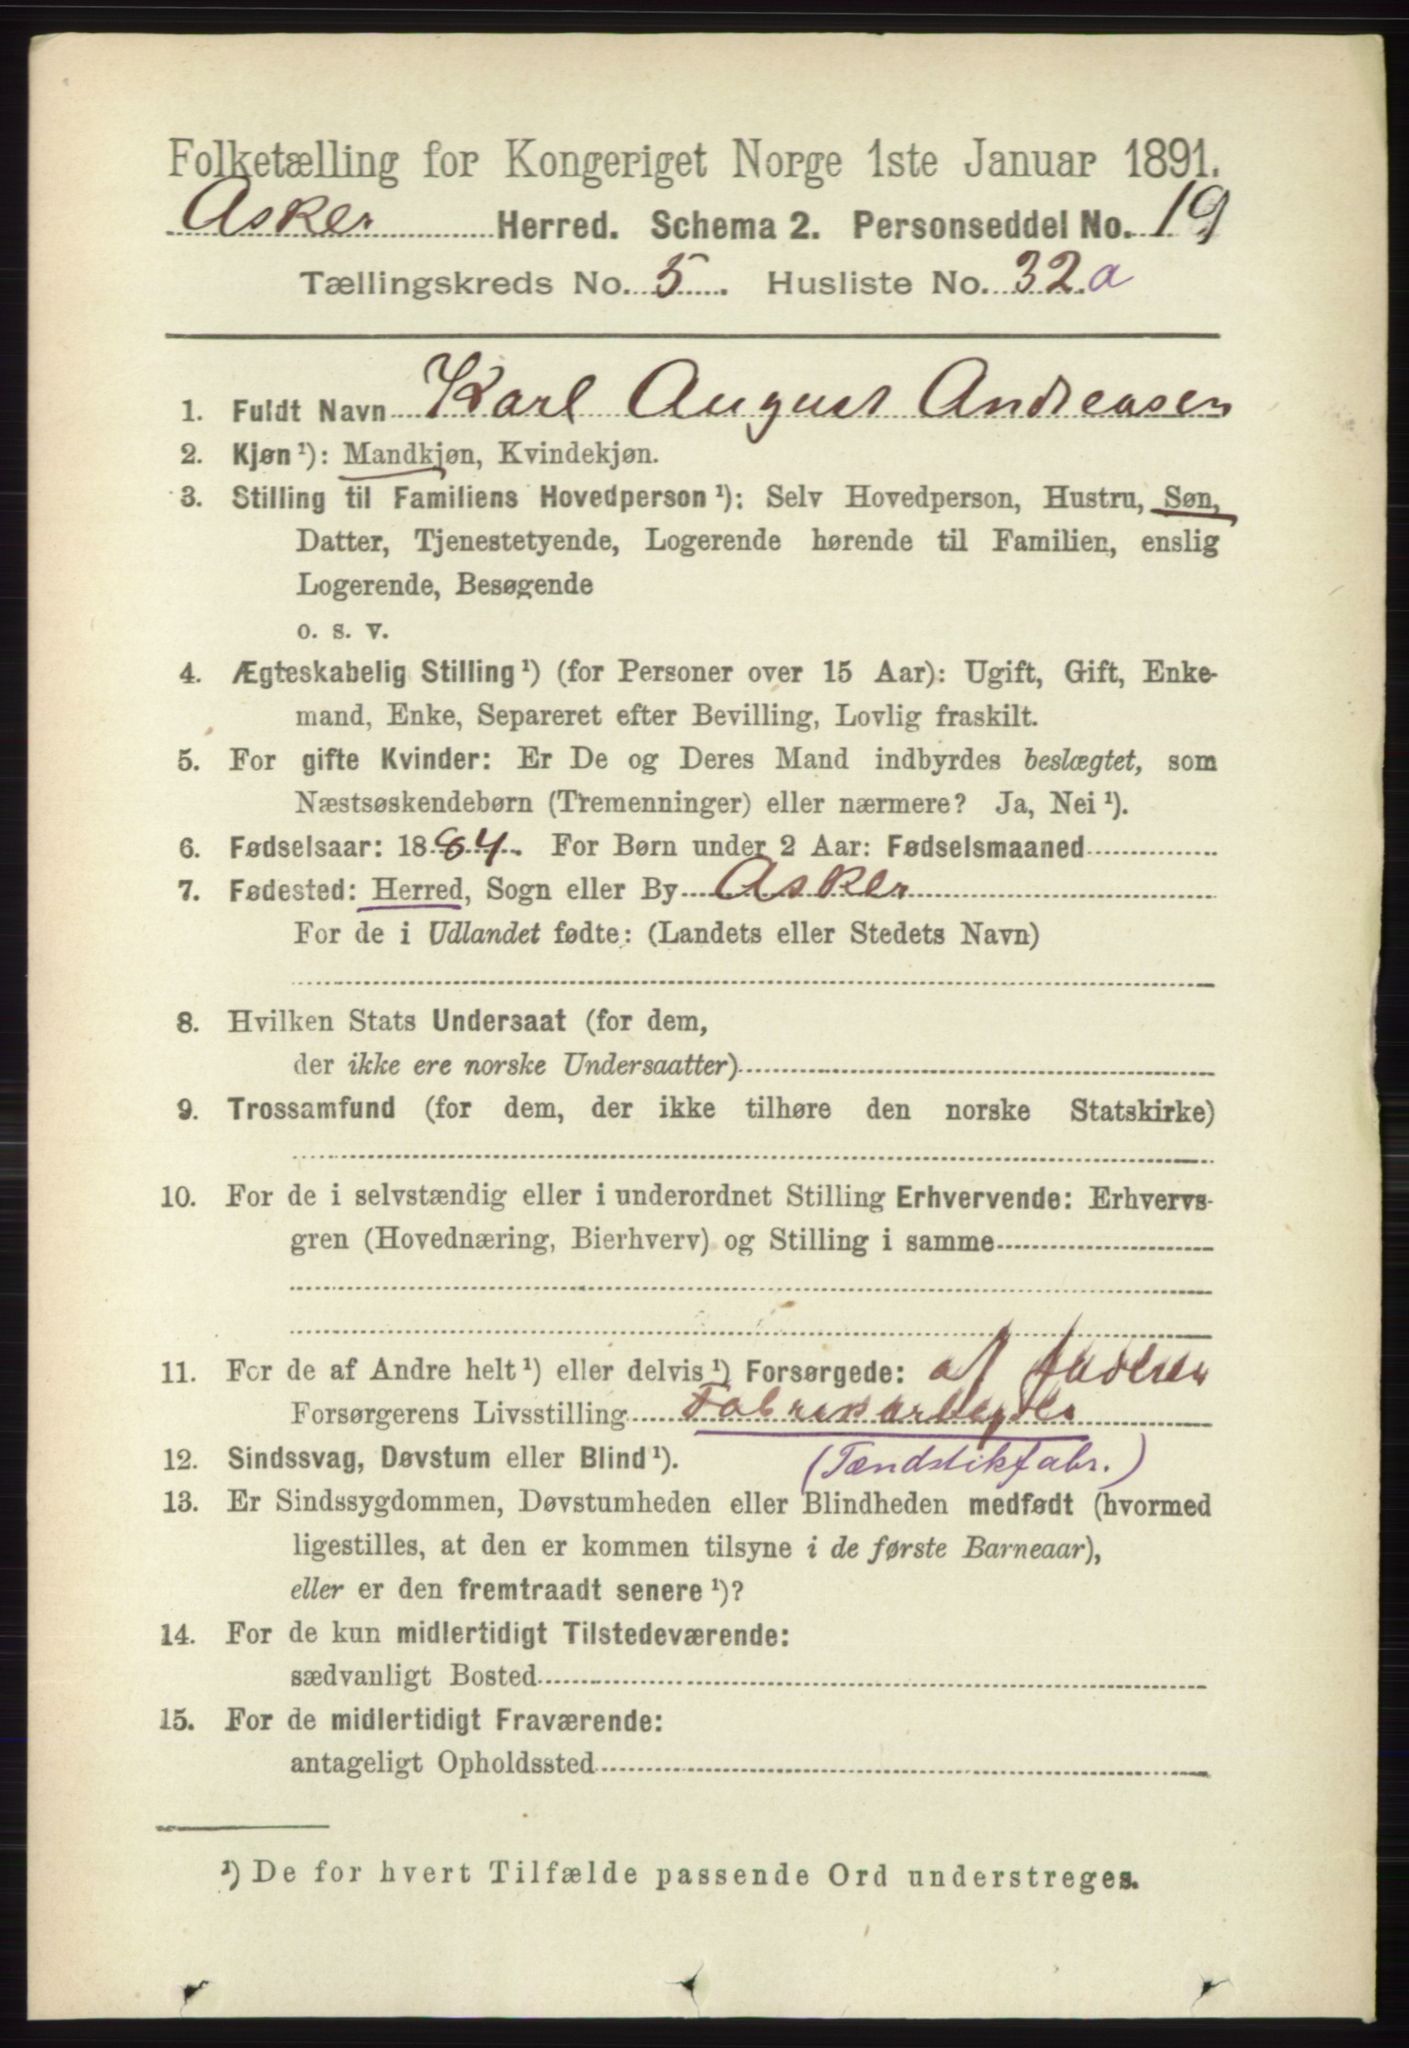 Folketælling for Kongeriget Norge 1ste Januar 1891.
Asker Herred. Schema 2. Personseddel No. 19
Tællingskreds No. 5. Husliste No. 32 a
1. Fuldt Navn Karl August Andreasen
2. Kjøn ¹): Mandkjøn, Kvindekjøn.
3. Stilling til Familiens Hovedperson ¹): Selv Hovedperson, Hustru, Søn,
Datter, Tjenestetyende, Logerende hørende til Familien, enslig
Logerende, Besøgende
o. s. v.
4. Ægteskabelig Stilling ¹) (for Personer over 15 Aar): Ugift, Gift, Enke-
mand, Enke, Separeret efter Bevilling, Lovlig fraskilt.
5. For gifte Kvinder: Er De og Deres Mand indbyrdes beslægtet, som
Næstsøskendebørn (Tremenninger) eller nærmere? Ja, Nei ¹).
6. Fødselsaar: 1884. For Børn under 2 Aar: Fødselsmaaned
7. Fødested: Herred, Sogn eller By Asker
For de i Udlandet fødte: (Landets eller Stedets Navn)
8. Hvilken Stats Undersaat (for dem,
der ikke ere norske Undersaatter)
9. Trossamfund (for dem, der ikke tilhøre den norske Statskirke)
10. For de i selvstændig eller i underordnet Stilling Erhvervende: Erhvervs-
gren (Hovednæring, Bierhverv) og Stilling i samme
11. For de af Andre helt ¹) eller delvis ¹) Forsørgede: af Faderen
Forsørgerens Livsstilling Fabrikarbeyder
12. Sindssvag, Døvstum eller Blind ¹). (Tændstikfabr.)
13. Er Sindssygdommen, Døvstumheden eller Blindheden medfødt (hvormed
ligestilles, at den er kommen tilsyne i de første Barneaar),
eller er den fremtraadt senere ¹)?
14. For de kun midlertidigt Tilstedeværende:
sædvanligt Bosted
15. For de midlertidigt Fraværende:
antageligt Opholdssted
¹) De for hvert Tilfælde passende Ord understreges.